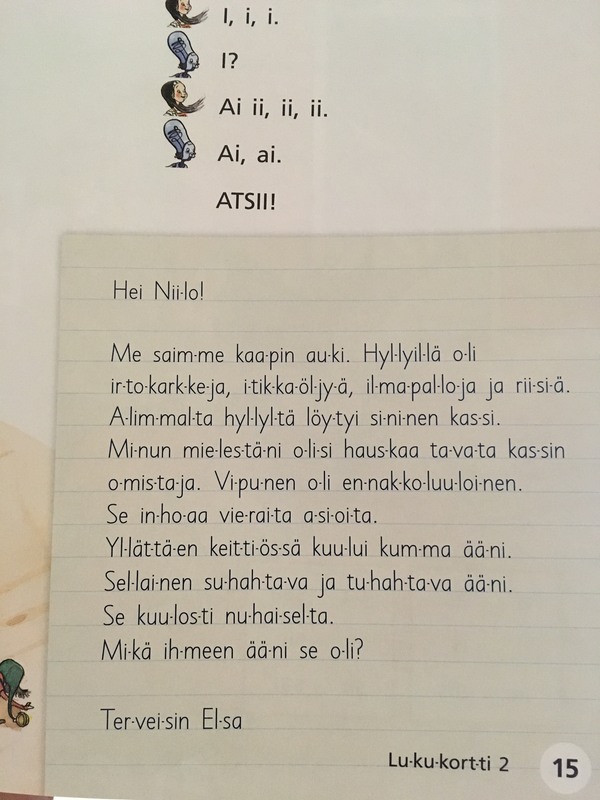 I, i, i.
I?
Ai ii, ii, ii.
Ai, ai.
ATSII!
Hei Nii·lo!
Me saim·me kaa·pin au·ki. Hyl·lyil·lä o·li
ir·to·kark·ke·ja, i·tik·ka·öl·jy·ä, il·ma·pal·lo·ja ja rii·si·ä.
A·lim·mal·ta hyl·lyl·tä löy·tyi si·ni·nen kas·si.
Mi·nun mie·les·tä·ni o·li·si haus·kaa ta·va·ta kas·sin
o·mis·ta·ja. Vi·pu·nen o·li en·nak·ko·luu·loi·nen.
Se in·ho·aa vie·rai·ta a·si·oi·ta.
Yl·lät·tä·en keit·ti·ös·sä kuu·lui kum·ma ää·ni.
Sel·lai·nen su·hah·ta·va ja tu·hah·ta·va ää·ni.
Se kuu·los·ti nu·hai·sel·ta.
Mi·kä ih·meen ää·ni se o·li?
Ter·vei·sin El·sa
Lu·ku·kort·ti 2
15